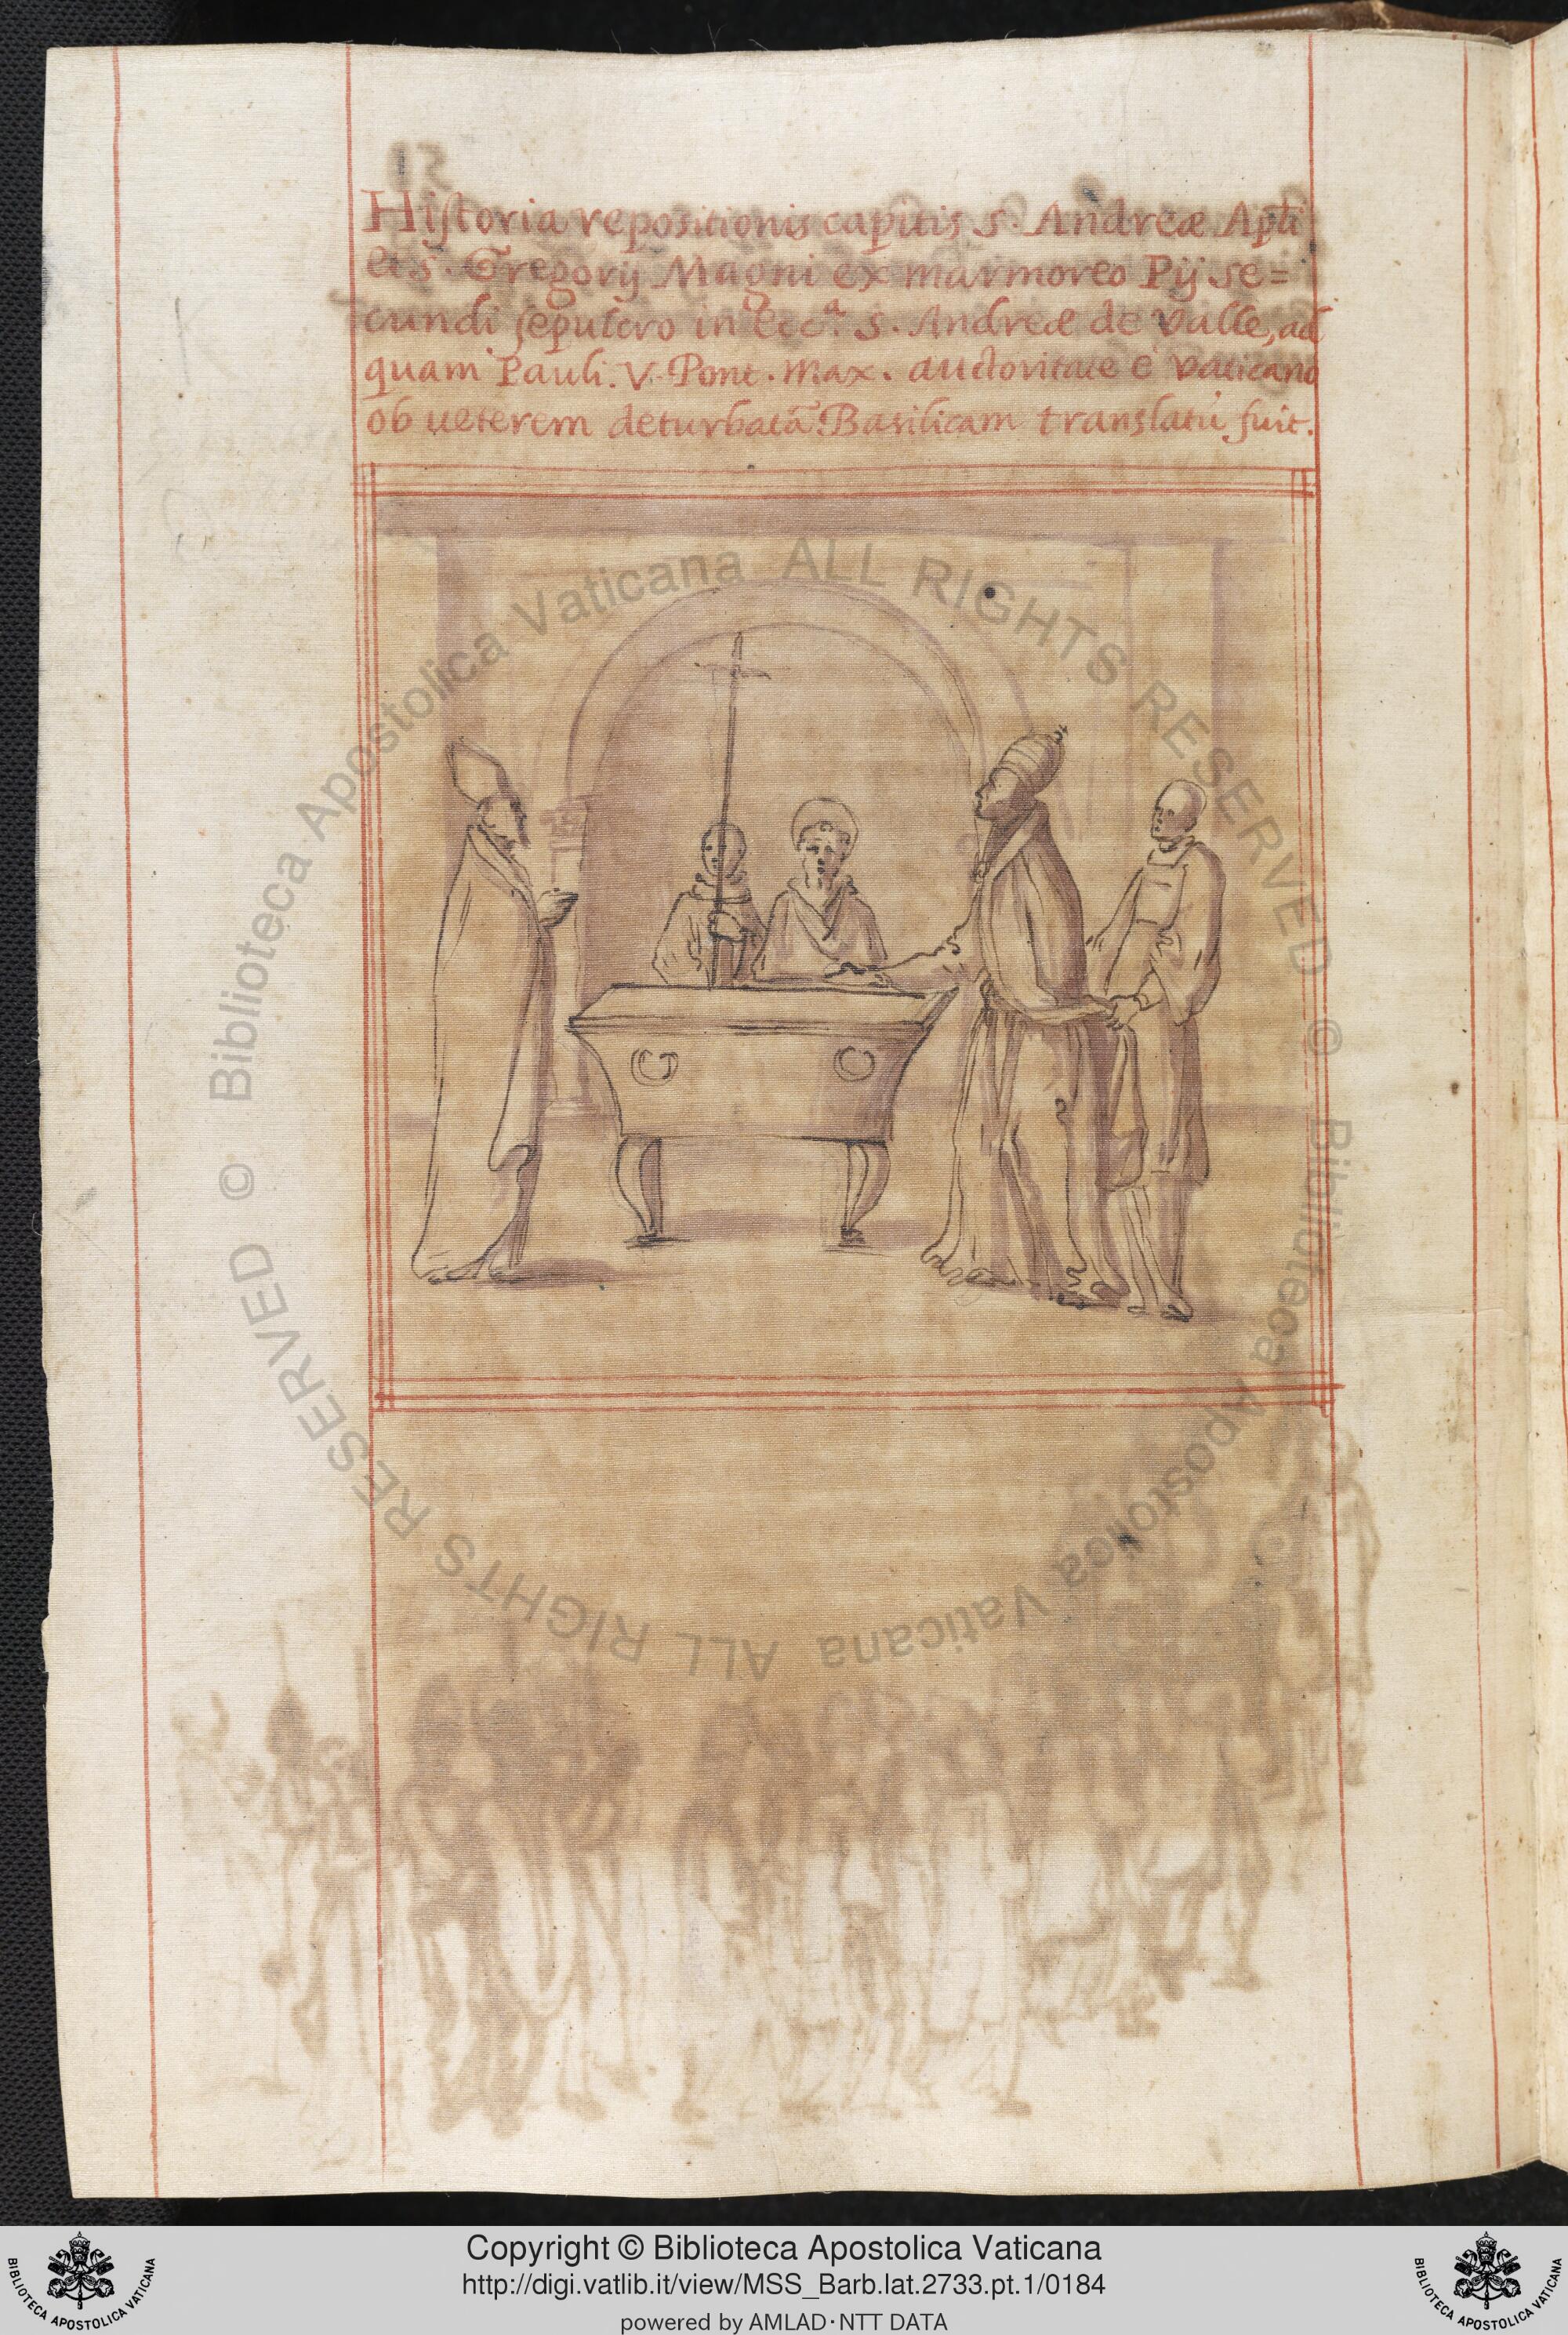 Historia repositionis capitis s. Andreæ Apti
et s. Gregorij Magni ex marmoreo Pij se=
cundi sepulcro in ecc.a s. Andreæ de Valle, ad
quam Pauli. V. Pont. Max. auctoritate e Vaticano
ob ueterem deturbatā Basilicam translatū fuit.
© Biblioteca Apostolica Vaticana ALL RIGHTS RESERVED
© Biblioteca Apostolica Vaticana ALL RIGHTS RESERVED
BIBLIOTECA APOSTOLICA VATICANA
Copyright © Biblioteca Apostolica Vaticana
http://digi.vatlib.it/view/MSS_Barb.lat.2733.pt.1/0184
powered by AMLAD·NTT DATA
BIBLIOTECA APOSTOLICA VATICANA